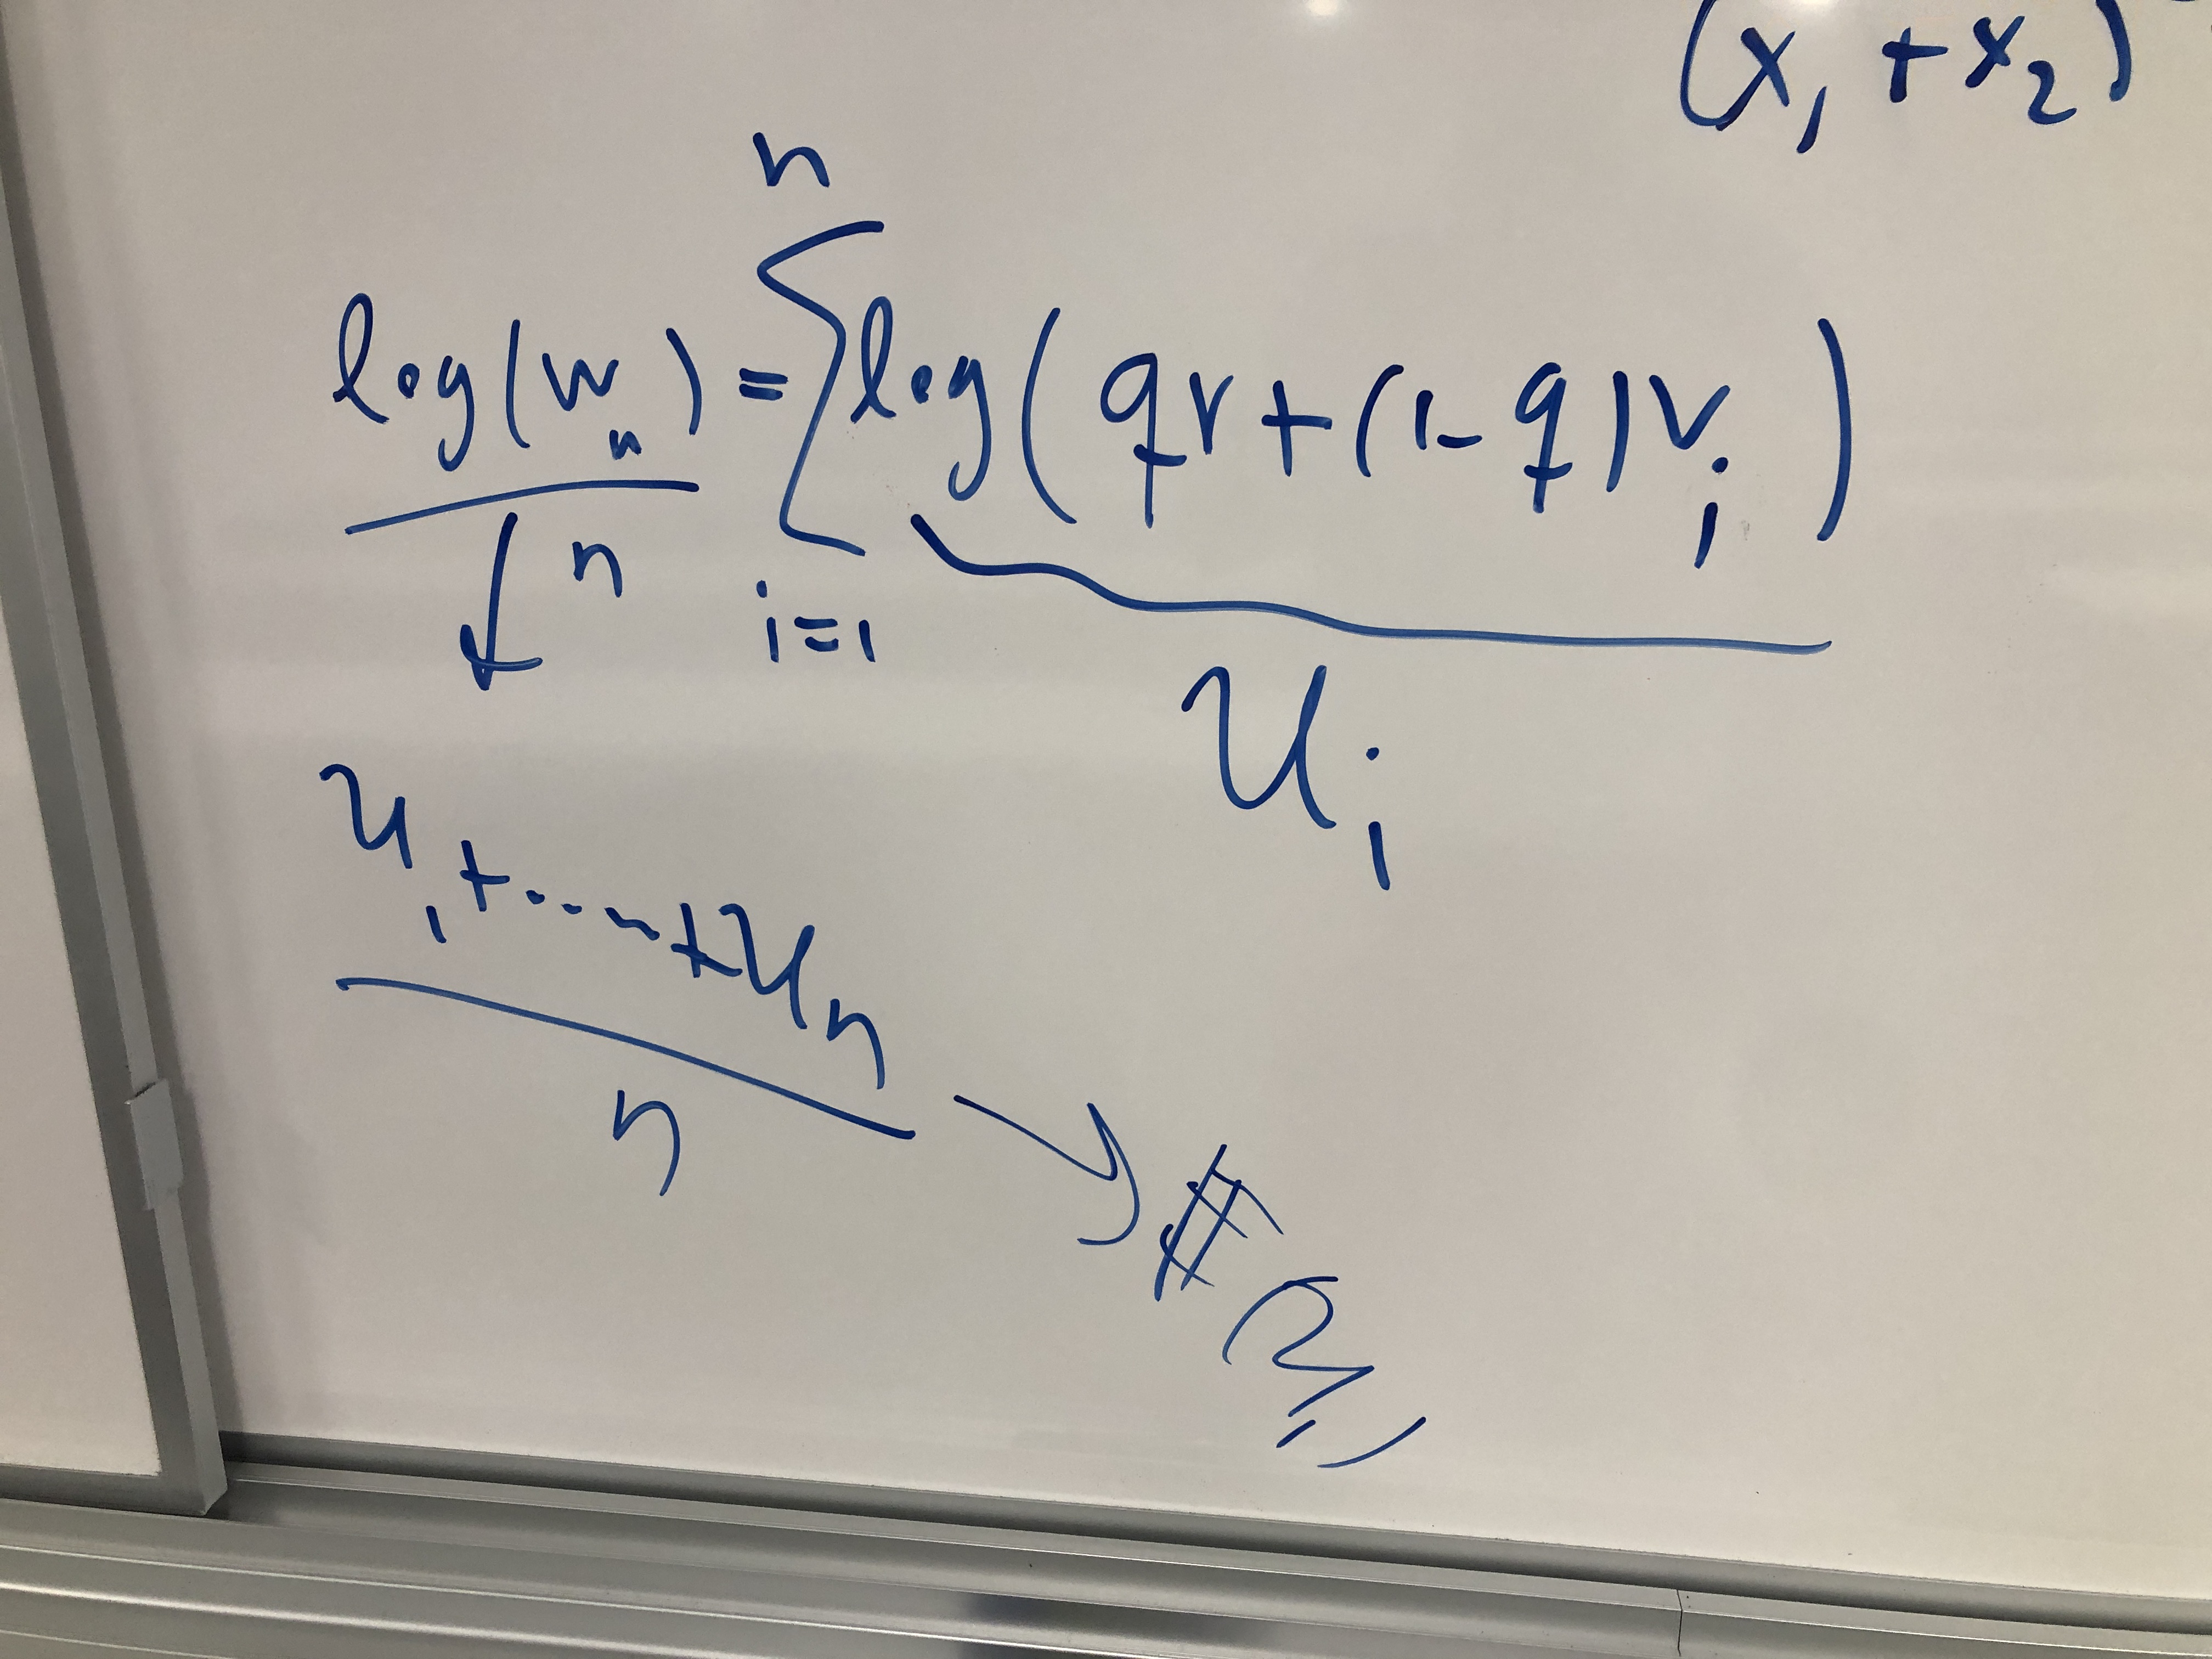 (x₁ + x₂)
log(wₙ) = ∑ⁿᵢ₌₁ log(qr + (1-q)vᵢ)
n
uᵢ
u₁ + ... + uₙ
n
→ E(u₁)